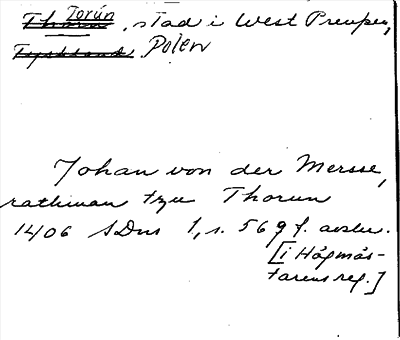 Torún
Thorn, stad i West Preussen,
Tyskland. Polen
Johan von der Mersse,
rathman tzu Thorun
1406 SDns 1, s. 569 f. avskr.
[i Högmäs-
tarens reg.]